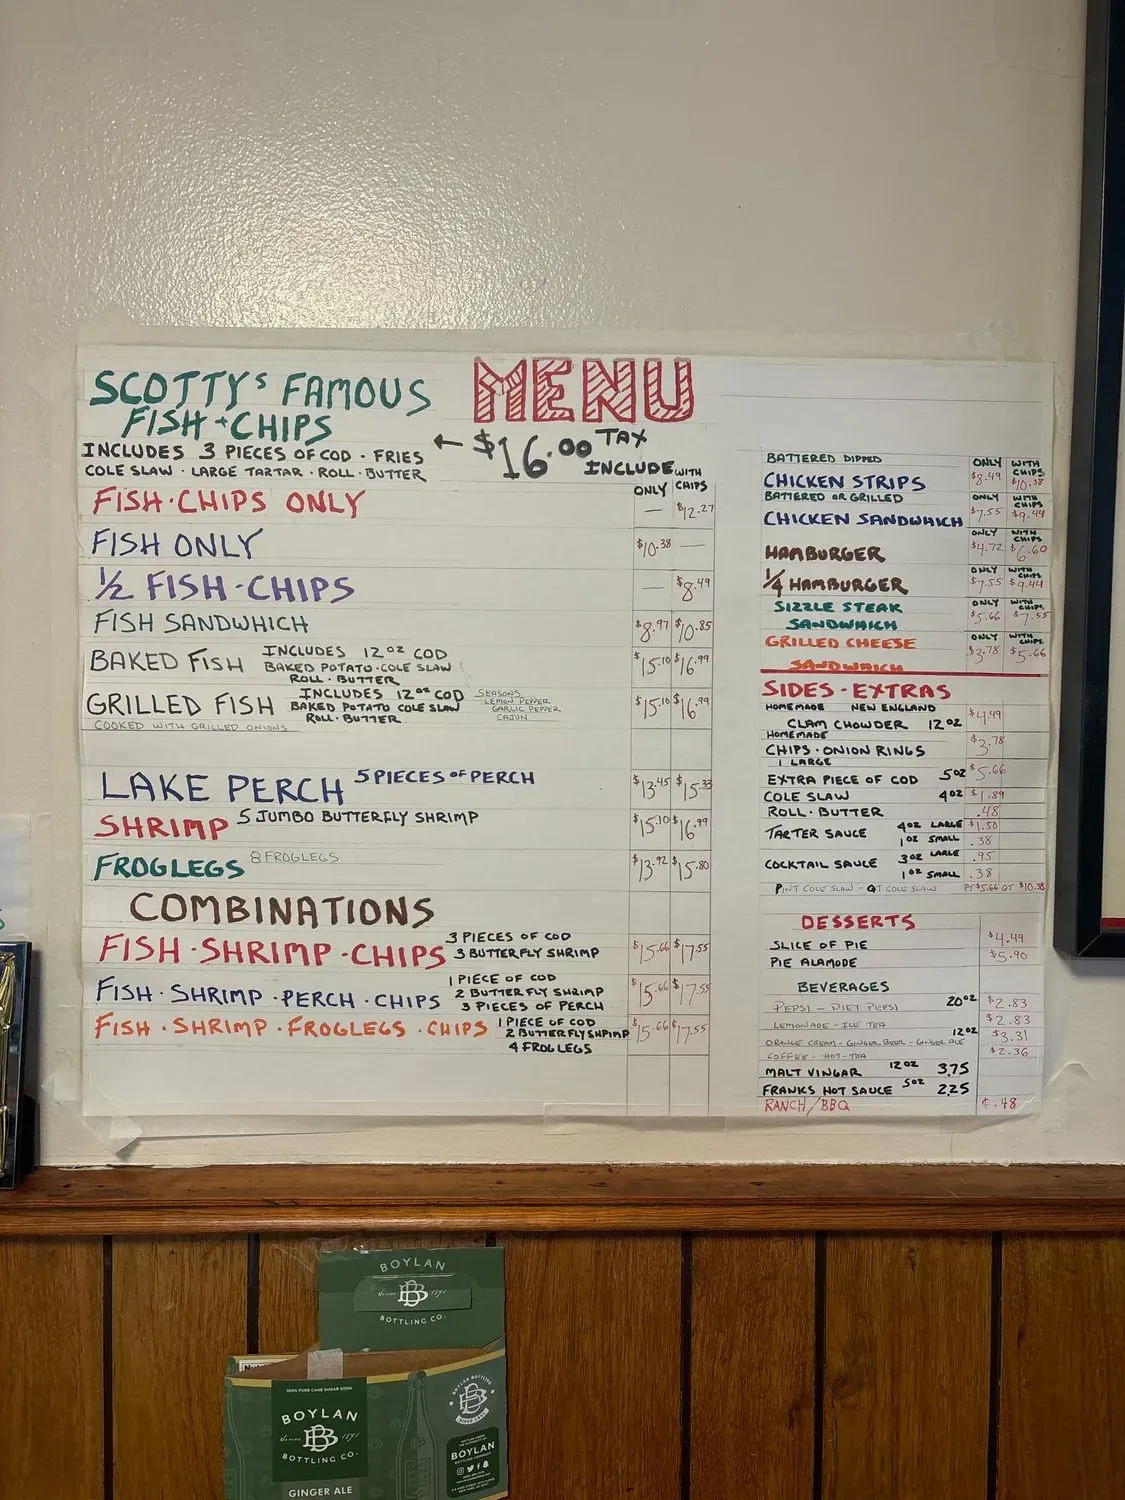 MENU
SCOTTY'S FAMOUS
FISH + CHIPS
INCLUDES 3 PIECES OF COD · FRIES
COLE SLAW · LARGE TARTAR · ROLL · BUTTER
← $16.00 TAX
INCLUDE
ONLY WITH CHIPS
FISH · CHIPS ONLY — $12.27
FISH ONLY $10.38 —
1/2 FISH · CHIPS — $8.49
FISH SANDWHICH $8.97 $10.85
BAKED FISH INCLUDES 12 OZ COD $15.10 $16.99
BAKED POTATO · COLE SLAW
ROLL · BUTTER
GRILLED FISH INCLUDES 12 OZ COD $15.10 $16.99
BAKED POTATO COLE SLAW
ROLL · BUTTER
SEASONS
LEMON PEPPER
GARLIC PEPPER
CAJUN
COOKED WITH GRILLED ONIONS
LAKE PERCH 5 PIECES OF PERCH $13.45 $15.33
SHRIMP 5 JUMBO BUTTERFLY SHRIMP $15.10 $16.99
FROGLEGS 8 FROGLEGS $13.92 $15.80
COMBINATIONS
FISH · SHRIMP · CHIPS 3 PIECES OF COD $15.66 $17.55
3 BUTTERFLY SHRIMP
FISH · SHRIMP · PERCH · CHIPS 1 PIECE OF COD $15.66 $17.55
2 BUTTERFLY SHRIMP
3 PIECES OF PERCH
FISH · SHRIMP · FROGLEGS · CHIPS 1 PIECE OF COD $15.66 $17.55
2 BUTTERFLY SHRIMP
4 FROGLEGS
BATTERED DIPPED ONLY WITH CHIPS
CHICKEN STRIPS $8.49 $10.38
BATTERED OR GRILLED ONLY WITH CHIPS
CHICKEN SANDWHICH $7.55 $9.44
ONLY WITH CHIPS
HAMBURGER $4.72 $6.60
ONLY WITH CHIPS
1/4 HAMBURGER $7.55 $9.44
SIZZLE STEAK ONLY WITH CHIPS
SANDWHICH $5.66 $7.55
GRILLED CHEESE ONLY WITH CHIPS
SANDWHICH $3.78 $5.66
SIDES · EXTRAS
HOMEMADE NEW ENGLAND
CLAM CHOWDER 12 OZ $4.49
HOMEMADE
CHIPS · ONION RINGS $3.78
1 LARGE
EXTRA PIECE OF COD 5 OZ $5.66
COLE SLAW 4 OZ $1.89
ROLL · BUTTER .48
TARTER SAUCE 4 OZ LARGE $1.50
1 OZ SMALL .38
COCKTAIL SAUCE 3 OZ LARGE .95
1 OZ SMALL .38
PINT COLE SLAW - QT COLE SLAW PT $5.66 QT $10.38
DESSERTS
SLICE OF PIE $4.49
PIE ALAMODE $5.90
BEVERAGES
PEPSI - DIET PEPSI 20 OZ $2.83
LEMONADE - ICE TEA $2.83
ORANGE CREAM - GINGER BEER - GINGER ALE 12 OZ $3.31
COFFEE - HOT-TEA $2.36
MALT VINGAR 12 OZ 3.75
FRANKS HOT SAUCE 5 OZ 2.25
RANCH/BBQ ¢.48
BOYLAN
Since 1891
BOTTLING CO.
100% PURE CANE SUGAR SODA
BOYLAN
Since 1891
BOTTLING CO.
GINGER ALE
BOYLAN